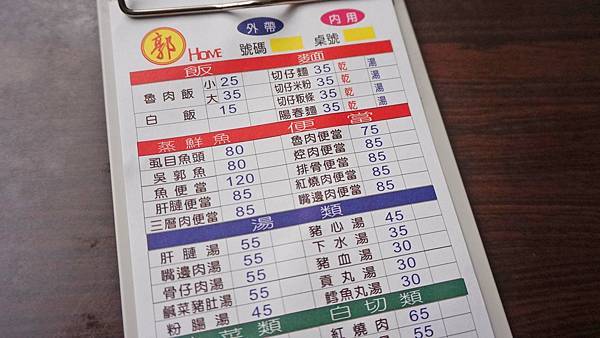 外帶 內用
郭 HOME 號碼 桌號
飯 麥面
魯肉飯 小 25 切仔麵 35 乾 湯
大 35 切仔米粉 35 乾 湯
白飯 15 切仔粄條 35 乾 湯
陽春麵 35 乾 湯
蒸鮮魚 便當
虱目魚頭 80 魯肉便當 75
吳郭魚 80 焢肉便當 85
魚便當 120 排骨便當 85
肝腱便當 85 紅燒肉便當 85
三層肉便當 85 嘴邊肉便當 85
湯類
肝腱湯 55 豬心湯 45
嘴邊肉湯 55 下水湯 35
骨仔肉湯 55 豬血湯 30
鹹菜豬肚湯 55 貢丸湯 30
粉腸湯 45 鱈魚丸湯 30
菜類 白切類
紅燒肉 65
55